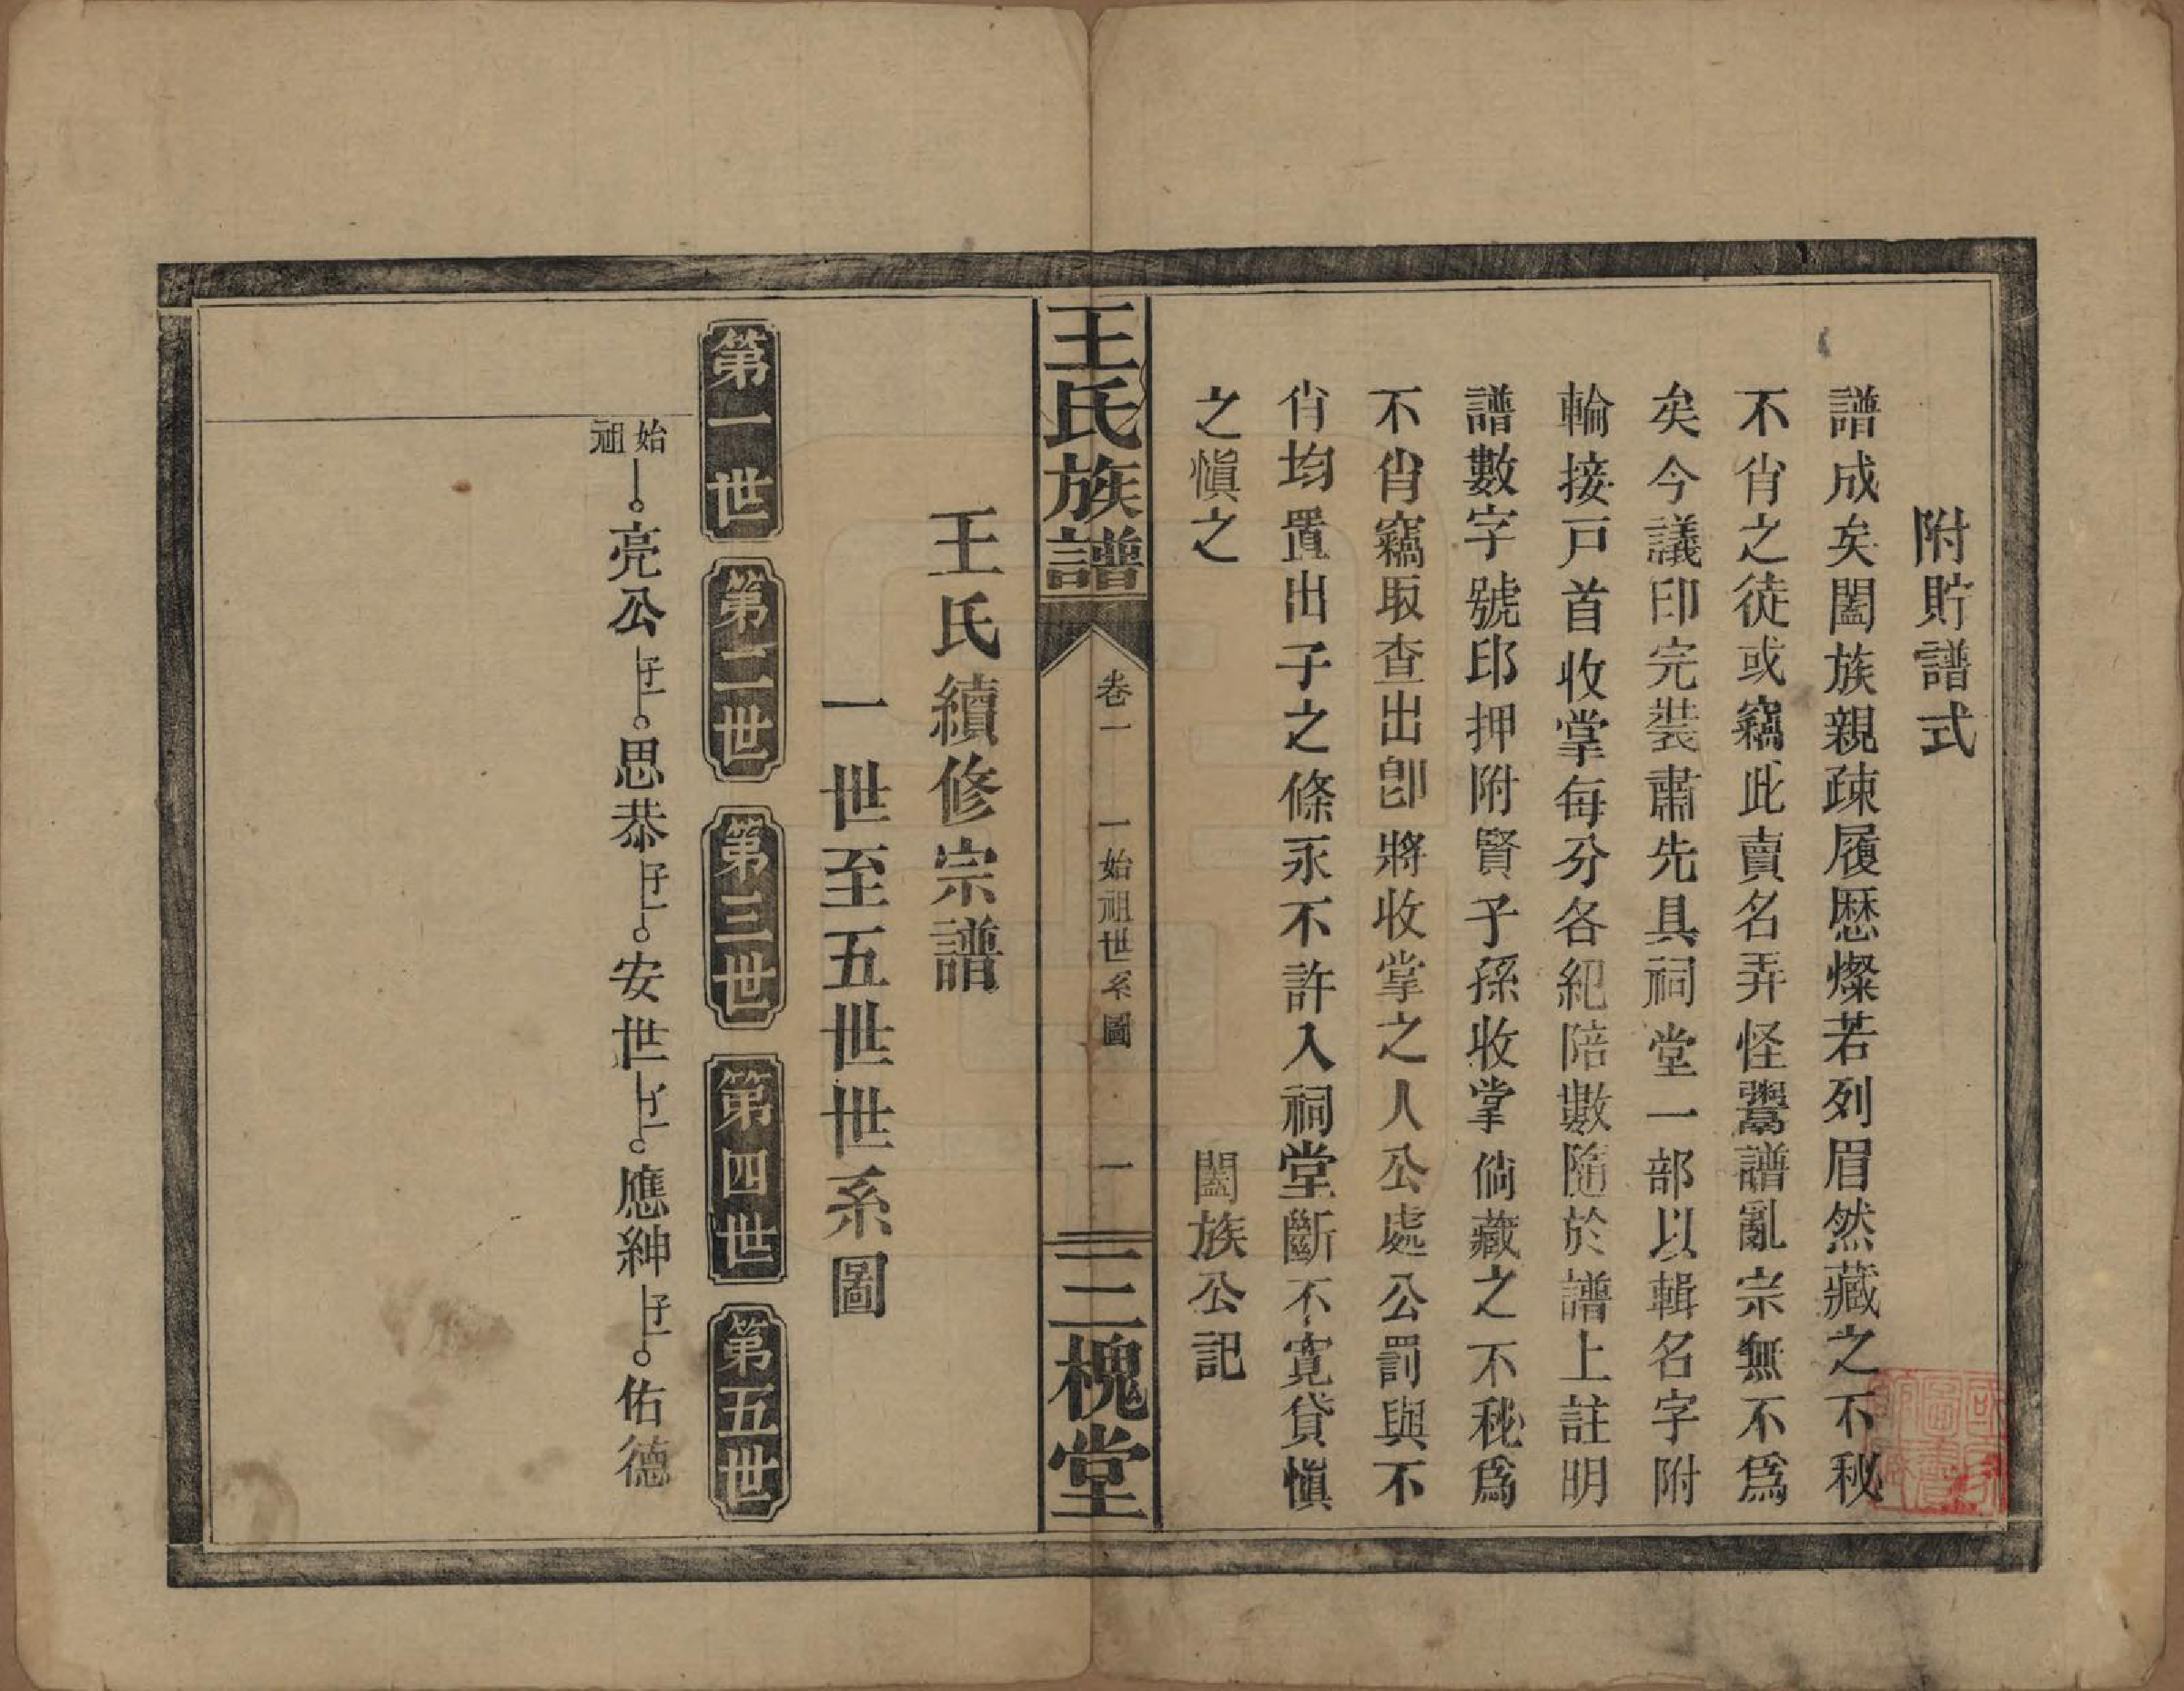 附貯譜式
譜成矣闔族親疎履歷燦若列眉然藏之不秘
不肖之徒或竊此賣名弄怪鬻譜亂宗無不爲
矣今議印完裝肅先具祠堂一部以輯名字附
輪接戸首收掌每分各紀陪數隨於譜上註明
譜數字號印押附賢子孫收掌倘藏之不秘爲
不肖竊取查出卽將收掌之人公處公罰與不
肖均置出子之條永不許入祠堂斷不寬貸愼
之愼之
闔族公記
王氏族譜
卷一
一始祖世系圖
一
三槐堂
王氏續修宗譜
一世至五世世系圖
第一世
第二世
第三世
第四世
第五世
始祖
亮公
子一
思恭
子一
安世
子一
應紳
子一
佑德